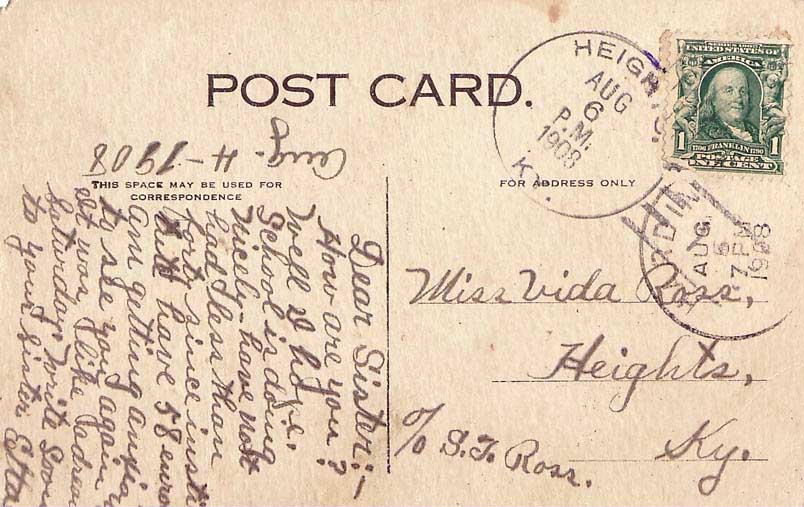 POST CARD.
THIS SPACE MAY BE USED FOR
CORRESPONDENCE
FOR ADDRESS ONLY
HEIGHTS
AUG
6
P.M.
1908
KY.
SERIES 1902
UNITED STATES OF
AMERICA
1
1
1706 FRANKLIN 1790
POSTAGE
ONE CENT
AUG.
6
7 PM
1908
Aug. 4-1908
Dear Sister:-
How are you?
Well I hope.
School is doing
nicely- have not
had less than
forty since insti
have 58
am getting
to see you again
like
Saturday. Write Soon
to your sister Etta
Miss Vida Ross,
Heights,
Ky.
c/o S.F. Ross.